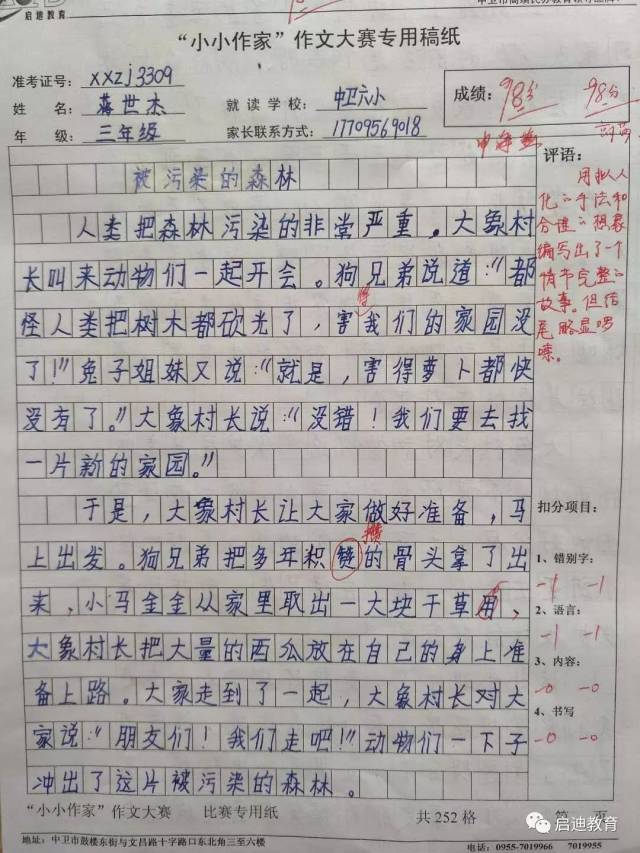 启迪教育
“小小作家”作文大赛专用稿纸
准考证号：xxzj3309
姓 名：蒋世杰 就读学校：中卫六小
年 级：三年级 家长联系方式：17709569018
成绩：98分 98分
评语：
用拟人
化的手法和
合理的想象
编写出了一个
情节完整的
故事。但结
尾略显啰
嗦。
被污染的森林
人类把森林污染的非常严重，大象村
长叫来动物们一起开会。狗兄弟说道：“都
怪人类把树木都砍光了，害得我们的家园没
了！”兔子姐妹又说：“就是，害得萝卜都快
没有了。”大象村长说：“没错！我们要去找
一片新的家园。”
于是，大象村长让大家做好准备，马
上出发。狗兄弟把多年积攒的骨头拿了出
来，小马金金从家里取出一大块干草用、
大象村长把大量的西瓜放在自己的身上准
备上路。大家走到了一起，大象村长对大
家说：“朋友们！我们走吧！”动物们一下子
冲出了这片被污染的森林。
扣分项目：
1、错别字：
-1 -1
2、语言：
-1 -1
3、内容：
-0 -0
4、书写
-0 -0
“小小作家”作文大赛 比赛专用纸 共 252 格 第 页
地址：中卫市鼓楼东街与文昌路十字路口东北角三至六楼 电话：0955-7019966 7019955
启迪教育